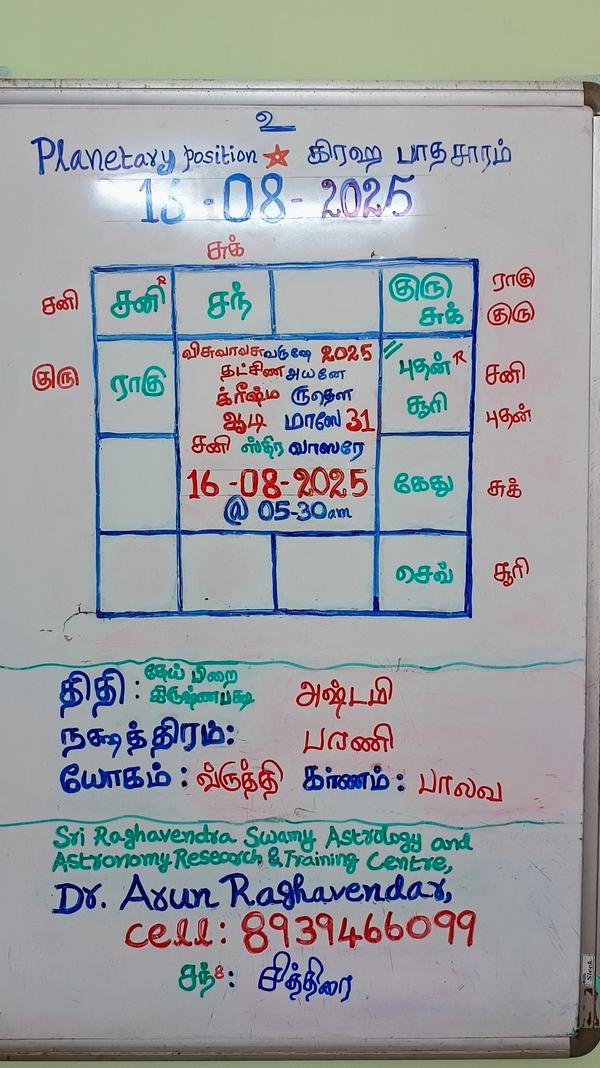 உ
Planetary position ☆ கிரஹ பாதசாரம்
16-08-2025
சுக்
சனி
சனி R
சந்
குரு
சுக்
ராகு
குரு
குரு
ராகு
விசுவாவசுவருஷே 2025
தட்சிணஅயனே
க்ரீஷ்ம ருதௌ
ஆடி மாஸே 31
சனி ஸ்திர வாஸரே
16-08-2025
@ 05-30am
புதன் R
சூரி
சனி
புதன்
கேது
சுக்
செவ்
சூரி
திதி: தேய் பிறை
கிருஷ்ணபக்ஷ
அஷ்டமி
நக்ஷத்திரம்: பரணி
யோகம்: வ்ருத்தி கர்ணம்: பாலவ
Sri Raghavendra Swamy Astrology and
Astronomy Research & Training Centre,
Dr. Arun Raghavendar,
cell: 8939466099
சந் 8: சித்திரை